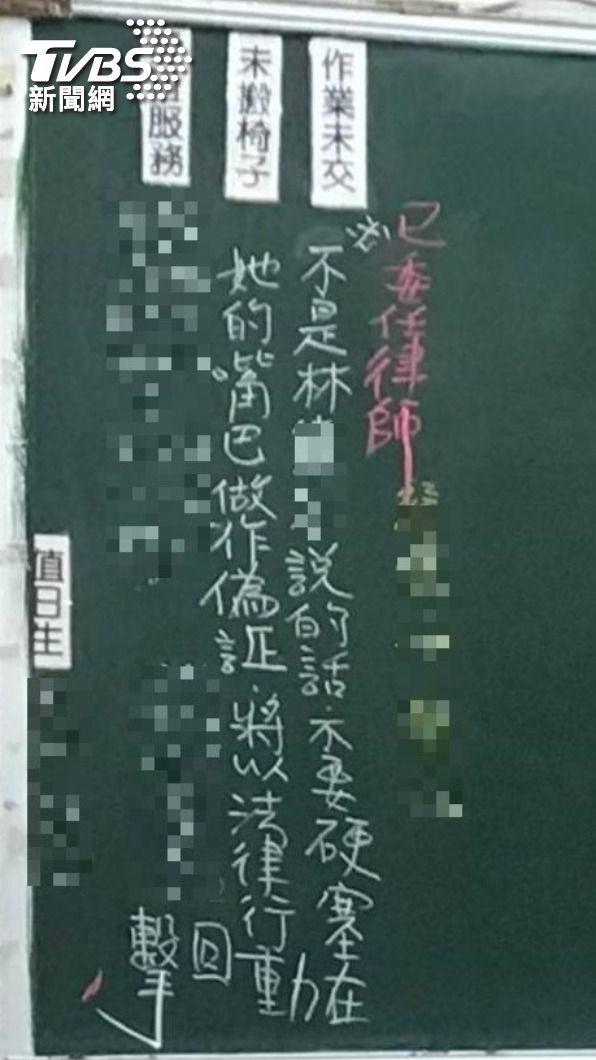 TVBS
新聞網
作業未交
未搬椅子
服務
已委任律師
※不是林 說的話.不要硬塞在
她的嘴巴做作偽証.將以法律行動
回
擊
值日生